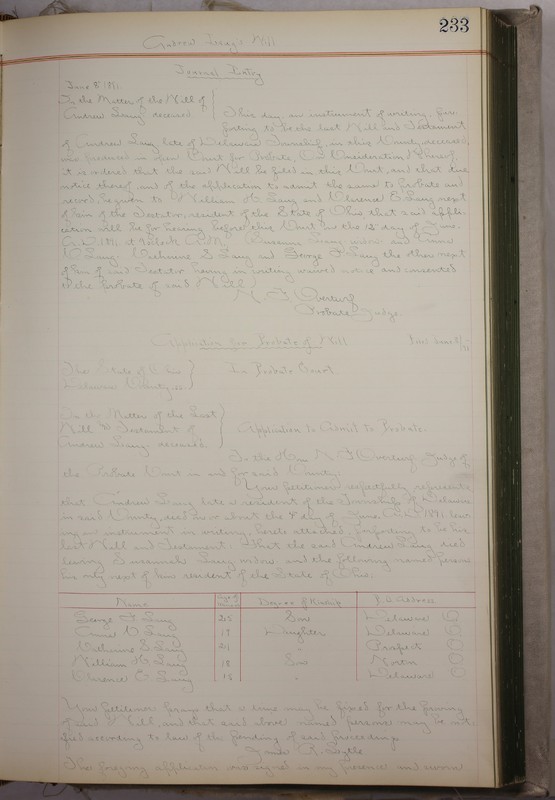 233
Andrew Lang's Will
Journal Entry
June 8 1891
In the Matter of the Will of
Andrew Lang deceased
This day, an instrument of writing, pur-
porting to be the last Will and Testament
of Andrew Lang late of Delaware Township, in this County, deceased
was produced in open Court for Probate, On Consideration thereof,
it is ordered that the said Will be filed in this Court, and that due
notice thereof, and of the application to admit the same to Probate and
record, be given to William H. Lang and Clarence E. Lang next
of kin of the Testator, resident of the State of Ohio that said appli-
cation will be for hearing before this Court on the 12 day of June.
A.D. 1891, at o'clock A.M. Susanna Lang widow and
Lang. S Lang and George F Lang the other next
of kin of said Testator having in writing waived notice and consented
to the Probate of said Will
Probate Judge.
Application for Probate of Will
The State of Ohio
Delaware County ss
In Probate Court.
In the Matter of the Last
Will & Testament of
Andrew Lang deceased.
Application to Admit to Probate.
To the Hon. Judge of
the Probate Court in and for said County:
Your Petitioner respectfully represents
that Andrew Lang late a resident of the Township of Delaware
in said County, died on or about the 4 day of June A.D. 1891 leav-
ing an instrument in writing, hereto attached, purporting to be his
last Will and Testament. That the said Andrew Lang died
leaving Susannah Lang widow and the following named persons
his only next of kin resident of the State of Ohio.
Name Degree of Kinship P.O. Address
George F Lang 25 Son Delaware O
Lang 19 Daughter Delaware O
S Lang 21 " Prospect O
William H Lang 18 Son Norton O
Clarence E Lang 15 " Delaware O
Your Petitioner prays that a time may be fixed for the proving
of said Will, and that said above named persons may be noti-
fied according to law of the pending of said proceedings
The foregoing application was signed in my presence and sworn